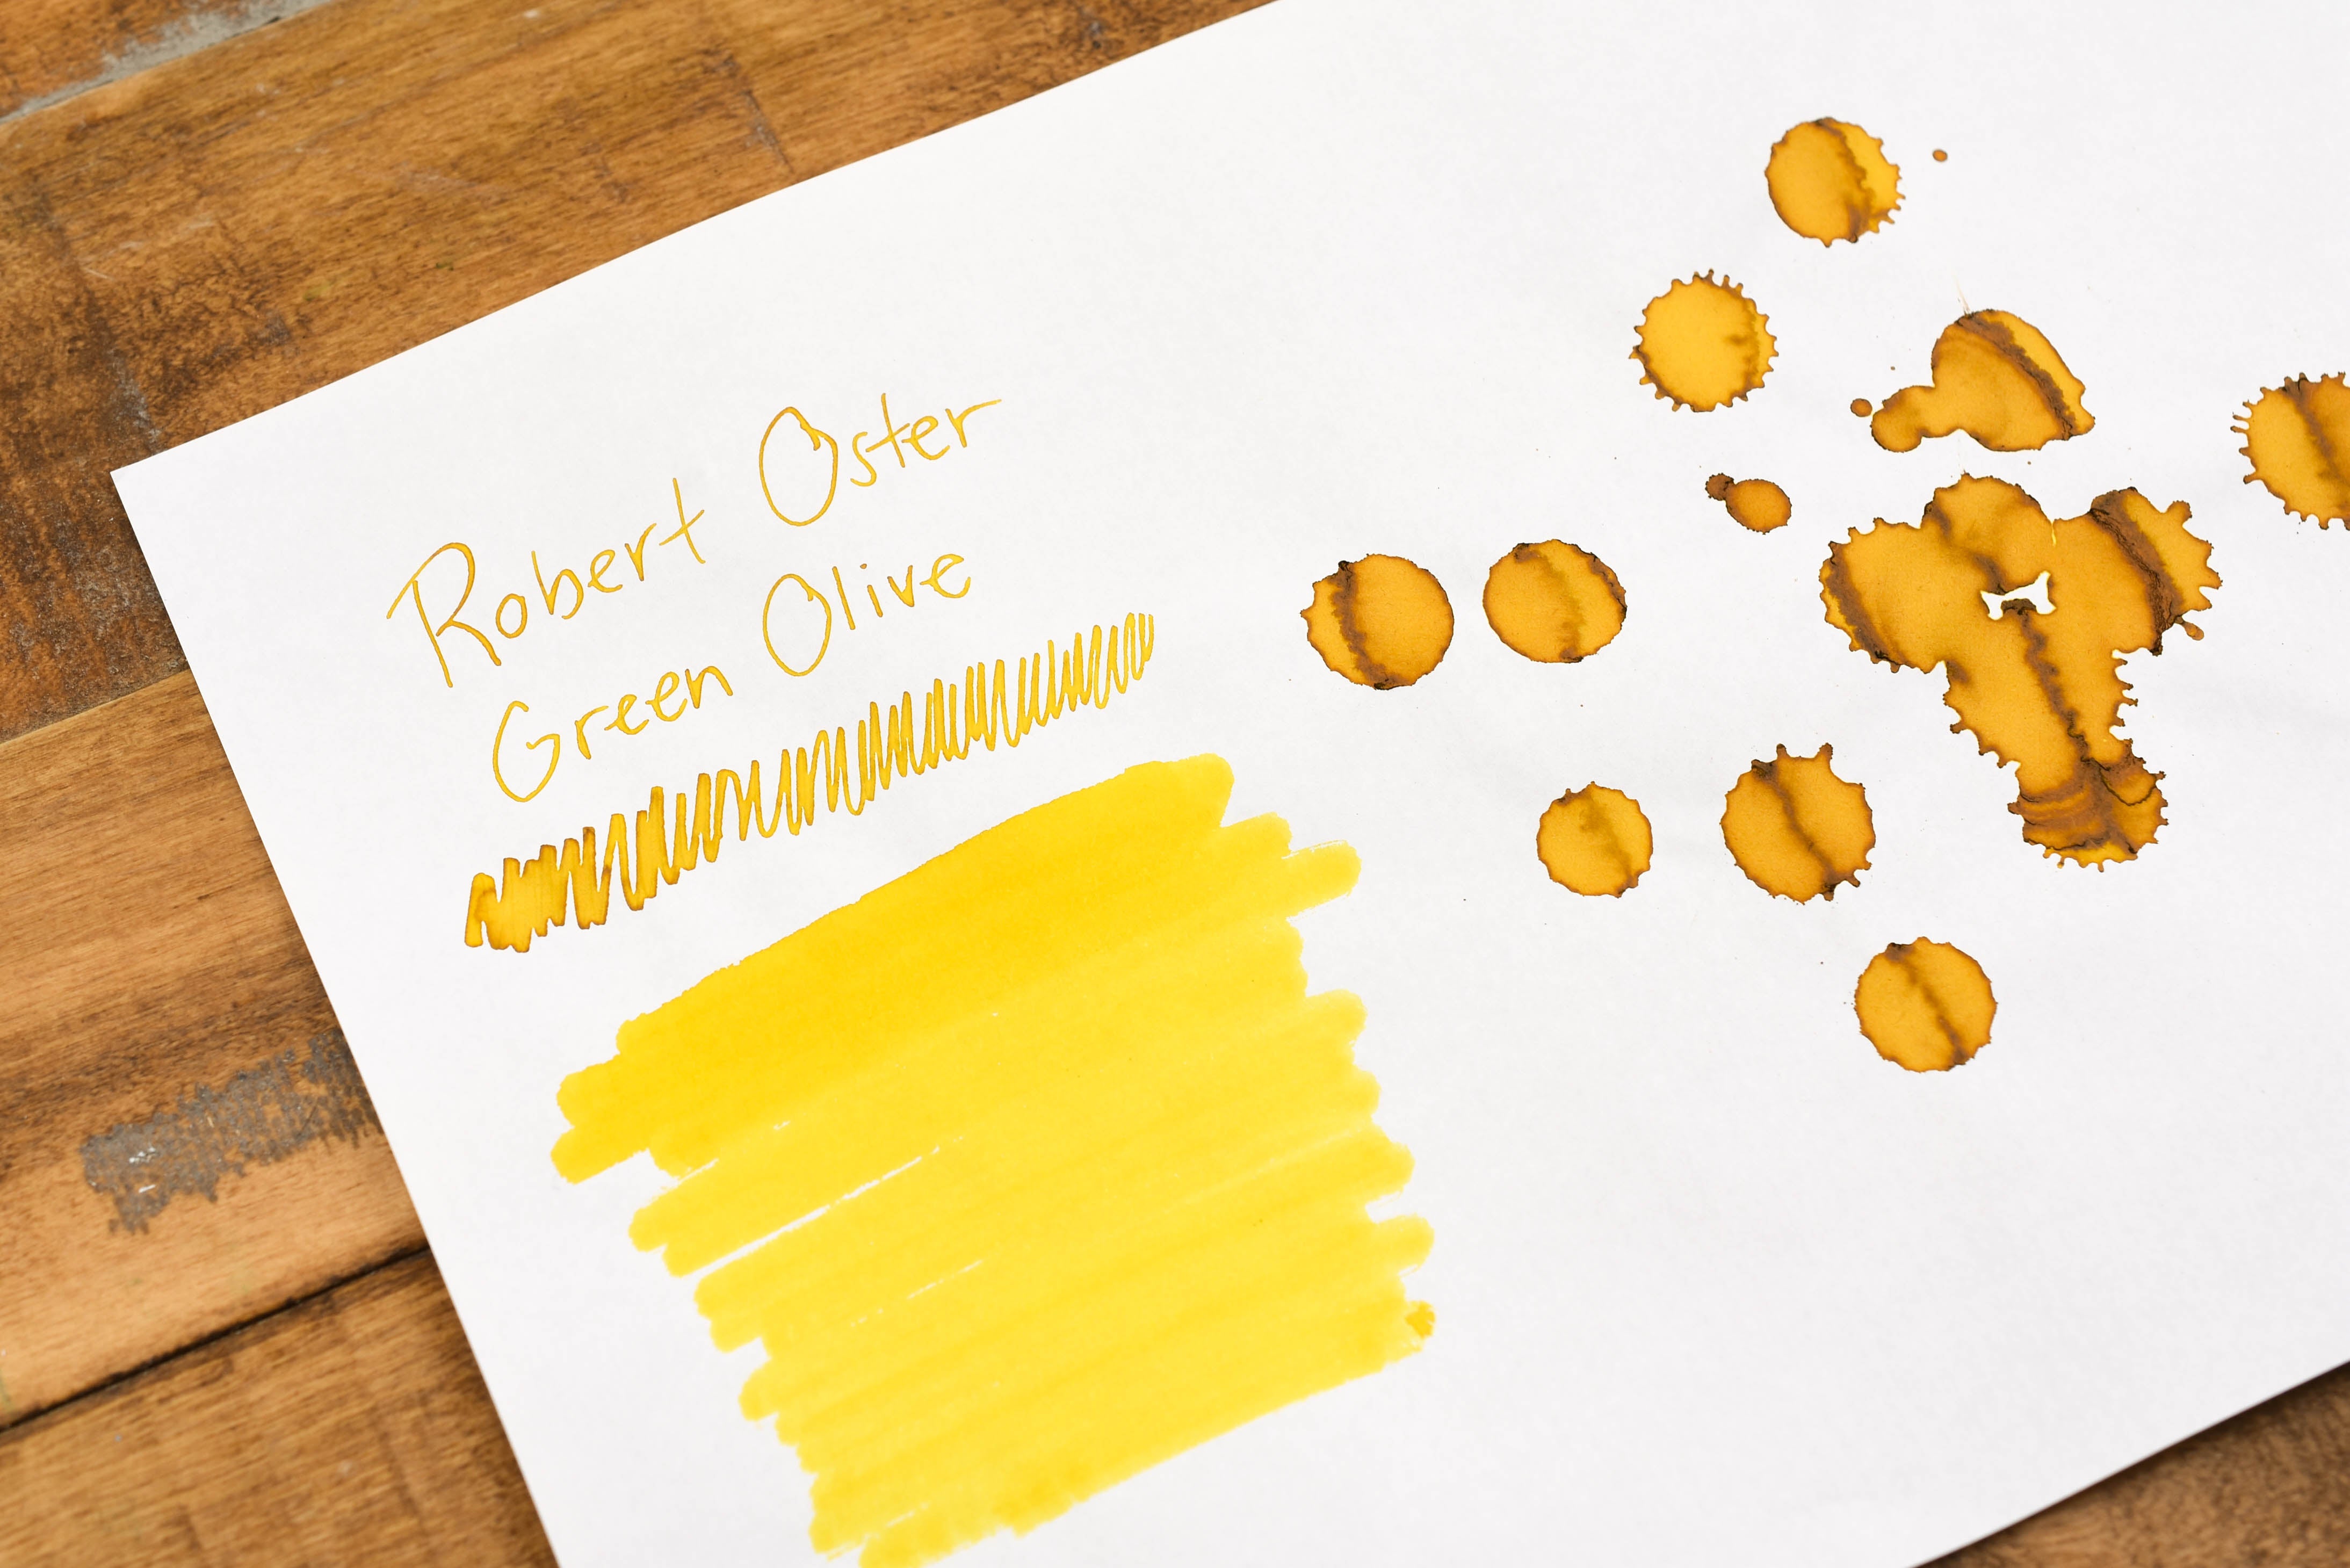 Robert Oster
Green Olive